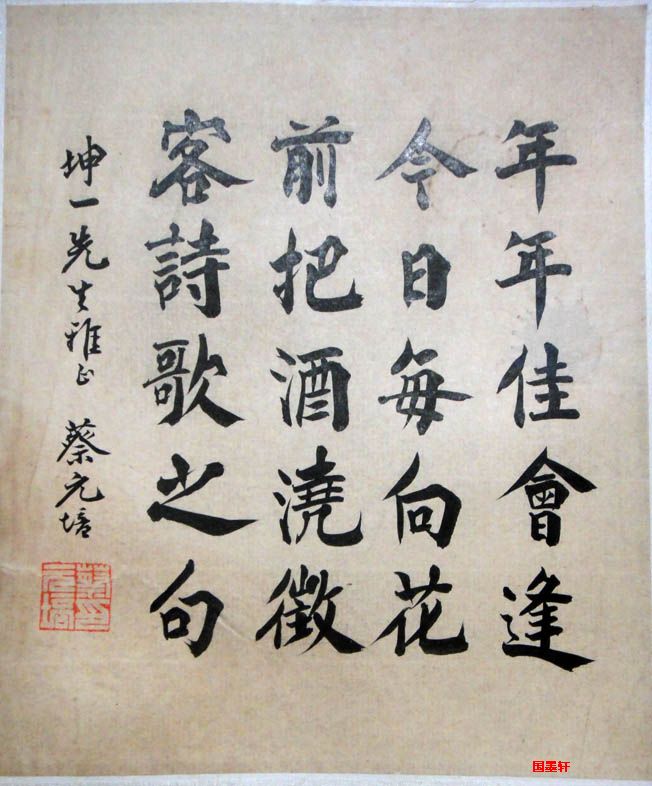 年年佳會逢
今日每向花
前把酒澆徵
客詩歌之句
坤一先生雅正 蔡元培
國墨轩